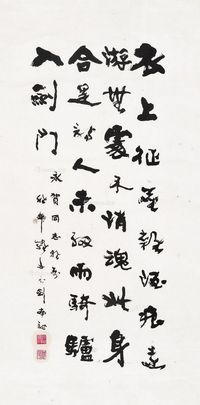 衣上征塵雜酒痕遠
游無處不消魂此身
合是詩人未細雨騎驢
入劍門
永賀同志